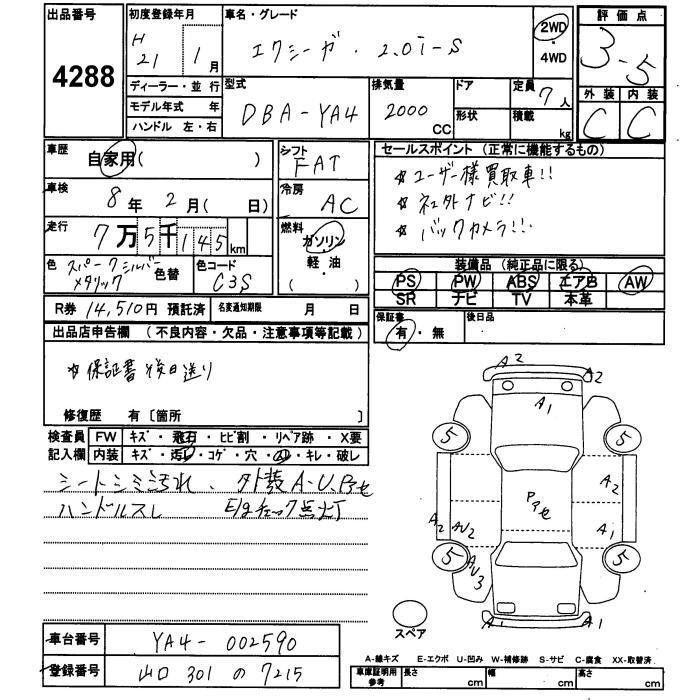 出品番号
4288
初度登録年月
H
21 1月
ディーラー・並行
モデル年式 年
ハンドル 左・右
車名・グレード
エクシーガ・2.0i-S
2WD
・
4WD
型式
DBA-YA4
排気量
2000
CC
ドア
形状
定員
7人
積載
kg
評価点
3-5
外装 内装
C C
車歴
自家用( )
車検
8年 2月( 日)
走行
7万5千145km
色
スパークシルバー
メタリック
色替
色コード
C3S
シフト
FAT
冷房
AC
燃料
ガソリン
・
軽・油
( )
セールスポイント(正常に機能するもの)
☆ユーザー様買取車!!
☆社外ナビ!!
☆バックカメラ!!
装備品(純正品に限る)
PS PW ABS エアB AW
SR ナビ TV 本革
R券 14,510円 預託済
名変通知期限 月 日
保証書
有・無
後日品
出品店申告欄(不良内容・欠品・注意事項等記載)
☆保証書後日送り
修復歴 有〔箇所 〕
検査員
記入欄
FW キズ・飛石・ヒビ割・リペア跡・X要
内装 キズ・汚れ・コゲ・穴・・キレ・破レ
シートシミ汚れ、外装A-U.Pアセ
ハンドルスレ E/gチェック点灯
A2 A2
A1
5 5
Pアセ
A2
A2 AU2 A1
5 5
AU3
A1 A1
スペア
車台番号
YA4-002590
登録番号
山口 301 の 7215
A-線キズ E-エクボ U-凹み W-補修跡 S-サビ C-腐食 XX-取替済
車庫証明用
参考
長さ cm
幅 cm
高さ cm